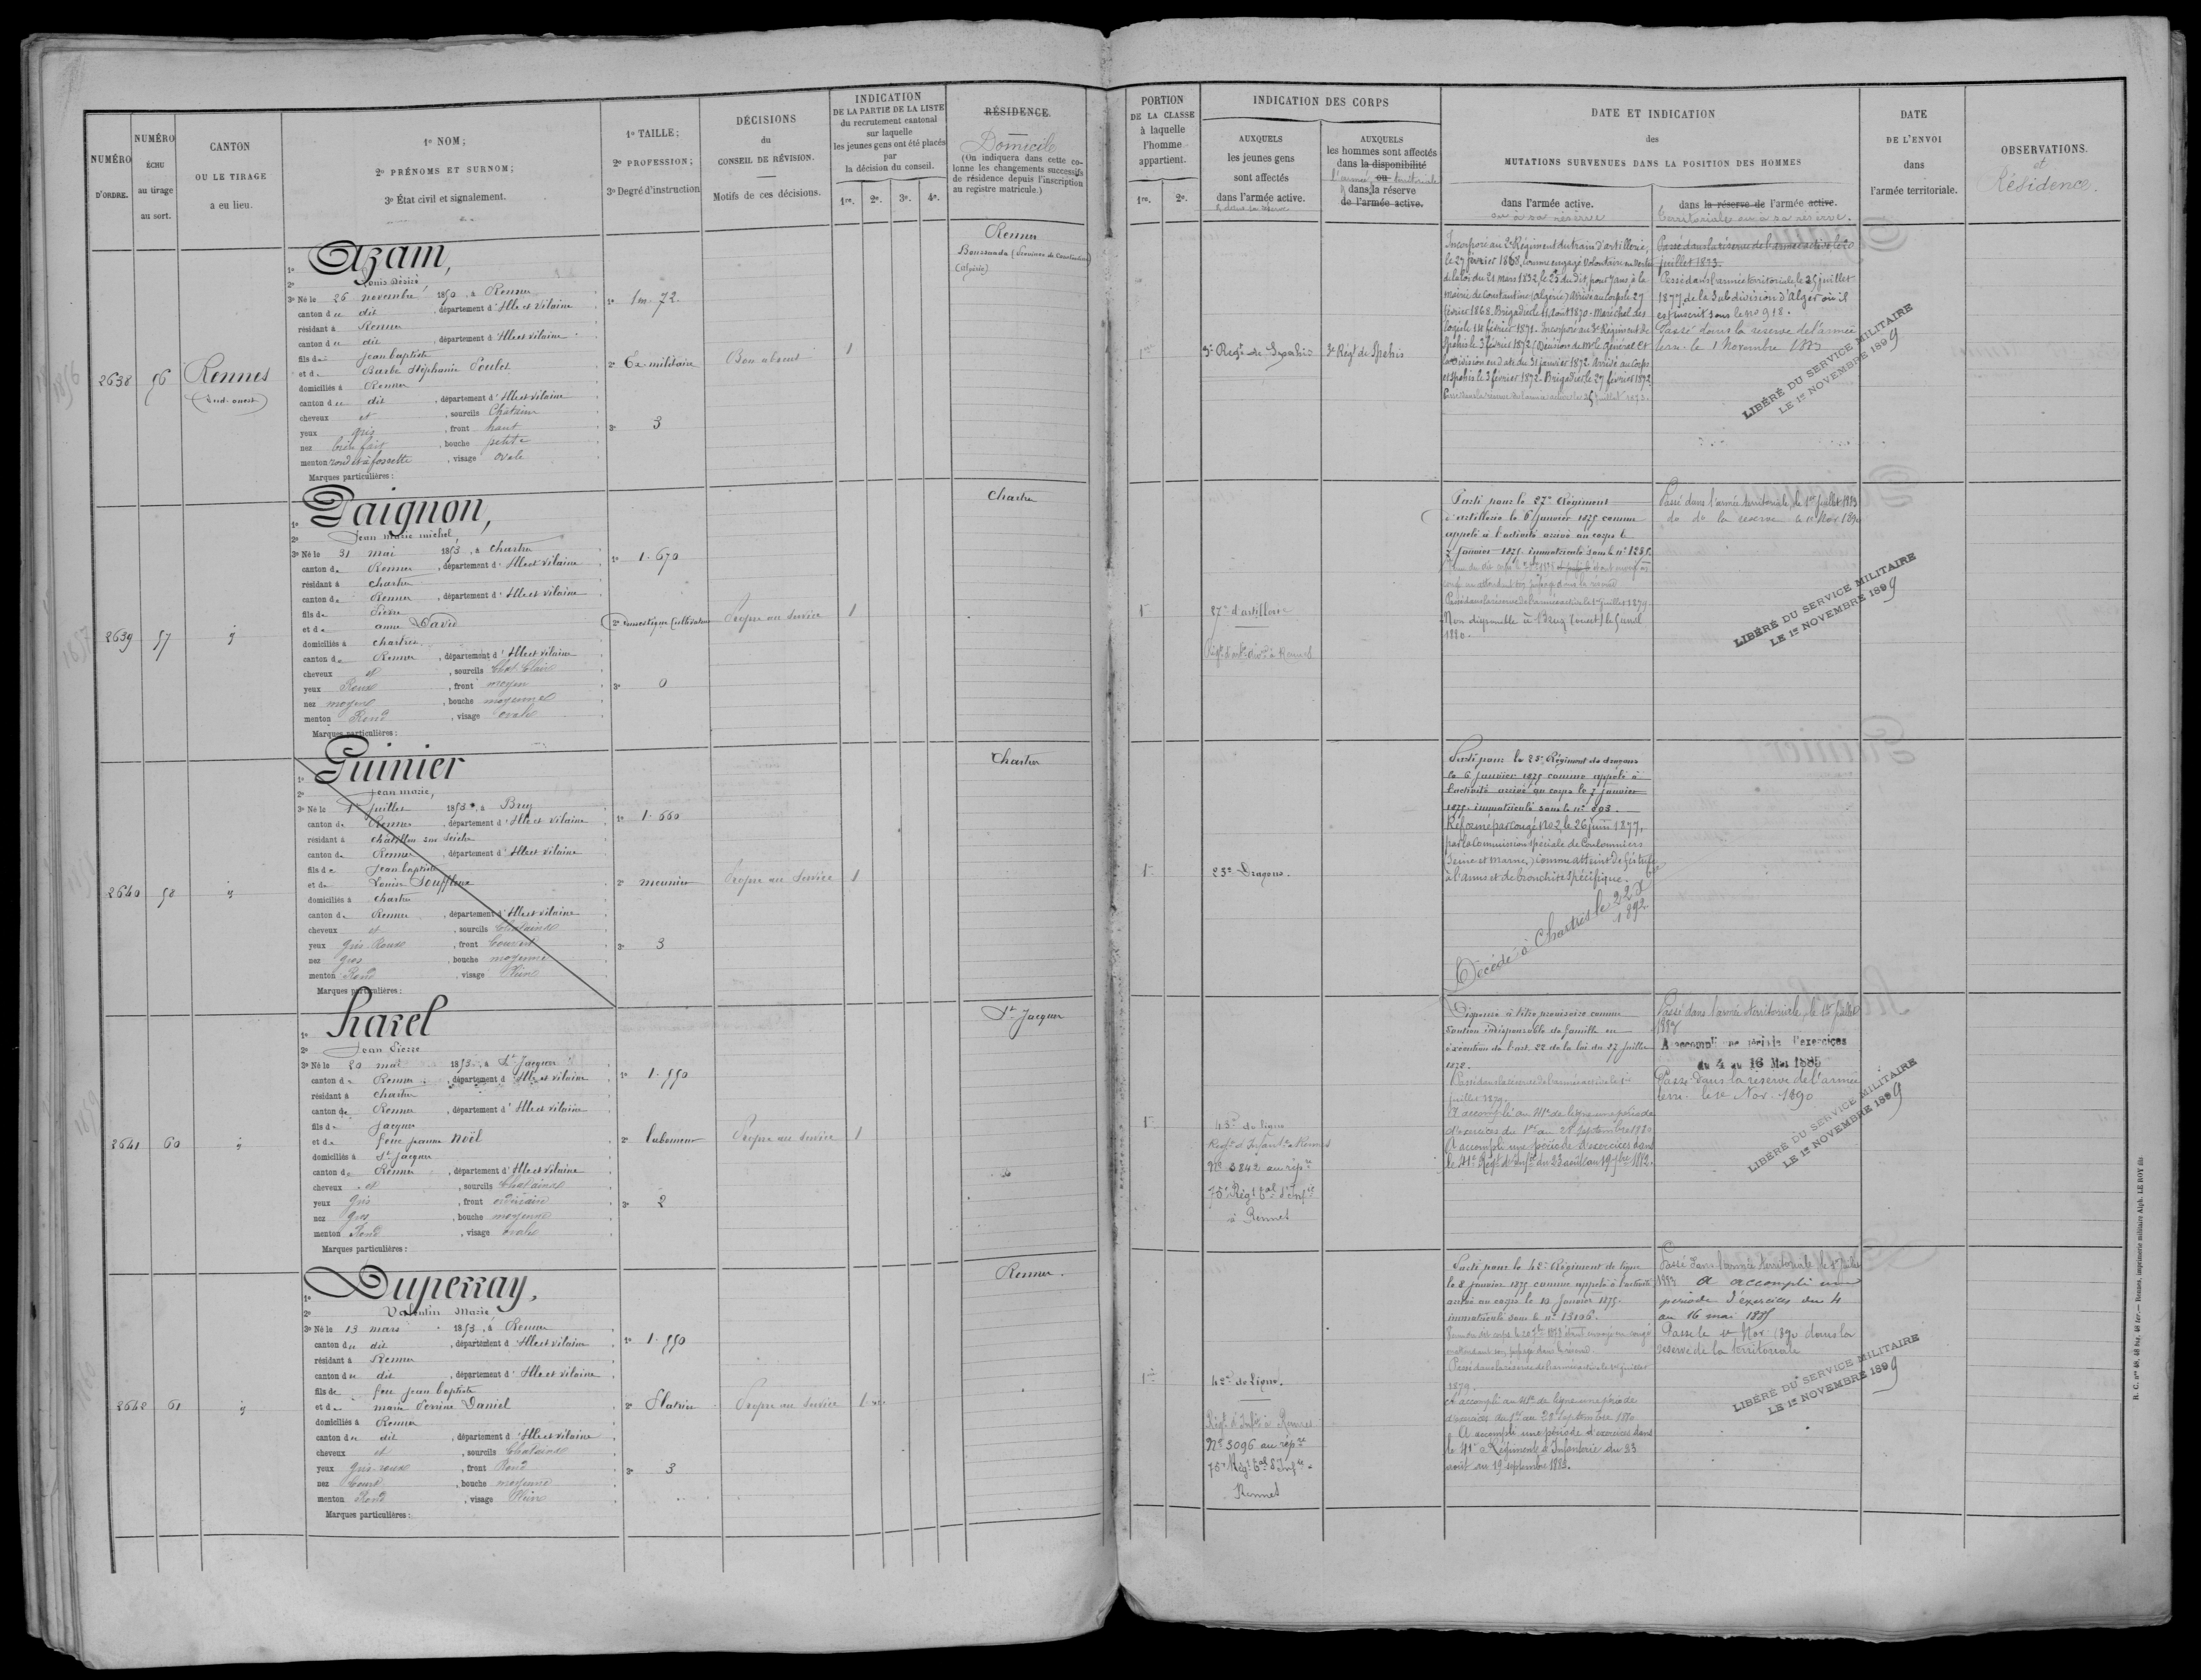 NUMÉRO D'ORDRE.
NUMÉRO ÉCHU au tirage au sort.
CANTON OU LE TIRAGE a eu lieu.
1º NOM;
2º PRÉNOMS ET SURNOM;
3º État civil et signalement.
1º TAILLE;
2º PROFESSION;
3º Degré d'instruction
DÉCISIONS
du
CONSEIL DE RÉVISION.
Motifs de ces décisions.
INDICATION
DE LA PARTIE DE LA LISTE
du recrutement cantonal
sur laquelle
les jeunes gens ont été placés
par
la décision du conseil.
1re. 2e. 3e. 4e.
RÉSIDENCE.
Domicile
(On indiquera dans cette co-
lonne les changements successifs
de résidence depuis l'inscription
au registre matricule.)
PORTION
DE LA CLASSE
à laquelle
l'homme
appartient.
1re. 2e.
INDICATION DES CORPS
AUXQUELS
les jeunes gens
sont affectés
dans l'armée active.
AUXQUELS
les hommes sont affectés
dans la disponibilité
l'armée ou territoriale
dans la réserve
de l'armée active.
DATE ET INDICATION
des
MUTATIONS SURVENUES DANS LA POSITION DES HOMMES
dans l'armée active.
ou à sa réserve
dans la réserve de l'armée active.
territoriale ou à sa réserve.
DATE
DE L'ENVOI
dans
l'armée territoriale.
OBSERVATIONS.
et
Résidence.
2638 56 Rennes
Sud-ouest
1º Azam,
2º Louis Désiré
3º Né le 26 novembre 1850, à Rennes
canton du dit, département d'Ille et Vilaine
résidant à Rennes
canton du dit, département d'Ille et Vilaine
fils de Jean baptiste
et de Barbe Stéphanie Poulet
domiciliés à Rennes
canton du dit, département d'Ille et Vilaine
cheveux et, sourcils Chatains
yeux gris, front haut
nez bien fait, bouche petite
menton rond et à fossette, visage ovale
Marques particulières:
1º 1m. 72
2º Ex-militaire
3º 3
Bon absent
1
Rennes
(Algérie)
1re
3e Regt de Spahis
3e Régt de Spahis
Incorporé au 2e Régiment du train d'artillerie,
le 27 février 1868, comme engagé volontaire en vertu
de la loi du 21 mars 1832, le 25 du dit, pour 7 ans à la
Mairie de Constantine (Algérie) Arrivé au corps le 27
février 1868. Brigadier le 11 août 1870 - Maréchal des
logis le 14 février 1871. Incorporé au 3e Régiment de
Spahis le 3 février 1872 (Décision de Mr le Général Ct
la Division en date du 31 janvier 1872. Arrivé au Corps
et Spahis le 3 février 1872. Brigadier le 27 février 1872
Passé dans la réserve de l'armée active le 25 juillet 1873.
Passé dans la réserve de l'armée active le 20
juillet 1873.
Passé dans l'armée territoriale, le 25 juillet
1877, de la Subdivision d'Alger où il
est inscrit sous le no 918.
Passé dans la réserve de l'armée
terr. le 1 Novembre 1883
LIBÉRÉ DU SERVICE MILITAIRE
LE 1er NOVEMBRE 1899
2639 57 id
1º Paignon,
2º Jean Marie michel,
3º Né le 31 mai 1853, à Chartres
canton de Rennes, département d'Ille et Vilaine
résidant à Chartres
canton de Rennes, département d'Ille et Vilaine
fils de Pierre
et de anne David
domiciliés à Chartres
canton de Rennes, département d'Ille et Vilaine
cheveux et, sourcils Chat. Clairs
yeux Roux, front moyen
nez moyen, bouche moyenne
menton Rond, visage ovale
Marques particulières:
1º 1.670
2º Domestique Cultivateur
3º 0
Propre au Service
1
Chartres
1re
27e d'artillerie
Partie pour le 27e Régiment
d'artillerie le 6 janvier 1875 comme
appelé à l'activité arrivé au corps le
7 janvier 1875. immatriculé sous le nº 1235.
Passé dans la réserve de l'armée active le 1er juillet 1879.
Non disponible à Bruz (ouest) le 5 avril
1880.
Passé dans l'armée territoriale, le 1er Juillet 1883
do do la réserve le 1er Nov 1890
LIBÉRÉ DU SERVICE MILITAIRE
LE 1er NOVEMBRE 1899
2640 58 id
1º Guinier
2º Jean marie,
3º Né le 1er Juillet 1853, à Bruz
canton de Rennes, département d'Ille et Vilaine
résidant à Châtillon sur Seiche
canton de Rennes, département d'Ille et Vilaine
fils de Jean baptiste
et de Louise Souffleux
domiciliés à Chartres
canton de Rennes, département d'Ille et Vilaine
cheveux et, sourcils Chatains
yeux Gris-Roux, front Couvert
nez Gros, bouche moyenne
menton Rond, visage Plein
Marques particulières:
1º 1.660
2º meunier
3º 3
Propre au Service
1
Chartres
1re
23e Dragons.
Parti pour le 23e Régiment de dragons
le 6 janvier 1875 comme appelé à
l'activité arrivé au corps le 7 janvier
1875. immatriculé sous le nº 803.
Réformé par congé No 2, le 26 juin 1877,
par la Commission spéciale de Coulommiers
(Seine et Marne,) comme atteint de fistule
à l'anus et de bronchite spécifique.
Décédé à Chartres le 22 Xbre
1892
2641 60 id
1º Harel
2º Jean Pierre
3º Né le 20 mai 1853, à St Jacques
canton de Rennes, département d'Ille et Vilaine
résidant à Chartres
canton de Rennes, département d'Ille et Vilaine
fils de Jacques
et de feue jeanne Noël
domiciliés à St Jacques
canton de Rennes, département d'Ille et Vilaine
cheveux et, sourcils Chatains
yeux Gris, front ordinaire
nez Gros, bouche moyenne
menton Rond, visage ovale
Marques particulières:
1º 1.550
2º laboureur
3º 2
Propre au Service
1
St Jacques
1re
Regt d'Infanterie Rennes
No 3842 au répre
75e Régt tal d'Infie
à Rennes
Dispensé à titre provisoire comme
soutien indispensable de famille en
exécution de l'art. 22 de la loi du 27 juillet
1872.
Passé dans la réserve de l'armée active le 1er
juillet 1879.
A accompli au 41e de ligne une période
d'exercices du 1er au 28 Septembre 1880
A accompli une période d'exercices dans
le 41e Régt d'Infie du 23 août au 19 7bre 1882.
Passé dans l'armée territoriale, le 1er Juillet
1883
A accompli une période d'exercices
du 4 au 16 Mai 1885
Passé dans la réserve de l'armée
terr. le 1er Nov. 1890
LIBÉRÉ DU SERVICE MILITAIRE
LE 1er NOVEMBRE 1899
2642 61 id
1º Duperray,
2º Valentin Marie,
3º Né le 13 mars 1853, à Rennes
canton du dit, département d'Ille et Vilaine
résidant à Rennes
canton du dit, département d'Ille et Vilaine
fils de feu Jean baptiste
et de marie Perrine Daniel
domiciliés à Rennes
canton du dit, département d'Ille et Vilaine
cheveux et, sourcils Chatains
yeux Gris-roux, front Rond
nez Court, bouche moyenne
menton Rond, visage Plein
Marques particulières:
1º 1.550
2º Platrier
3º 3
Propre au Service
1
Rennes.
1re
42e de Ligne.
Régt d'Infie à Rennes
No 3096 au répre
75e Régt tal d'Infie à
Rennes
Parti pour le 42e Régiment de ligne
le 8 janvier 1875 comme appelé à l'activité
arrivé au corps le 10 janvier 1875.
immatriculé sous le nº 13106.
Passé dans la réserve de l'armée active le 1er juillet
1879.
A accompli au 41e de ligne une période
d'exercices du 1er au 28 Septembre 1880.
A accompli une période d'exercices dans
le 41e Régiment d'Infanterie du 23
août au 19 septembre 1882.
Passé dans l'armée territoriale, le 1er Juillet
1883 A accompli une
période d'exercices du 4
au 16 mai 1885
Passé le 1er Nov 1890 dans la
réserve de la territoriale
LIBÉRÉ DU SERVICE MILITAIRE
LE 1er NOVEMBRE 1899
R. C. nos 48, 48 bis, 48 ter.— Rennes, imprimerie militaire Alph. LE ROY fils